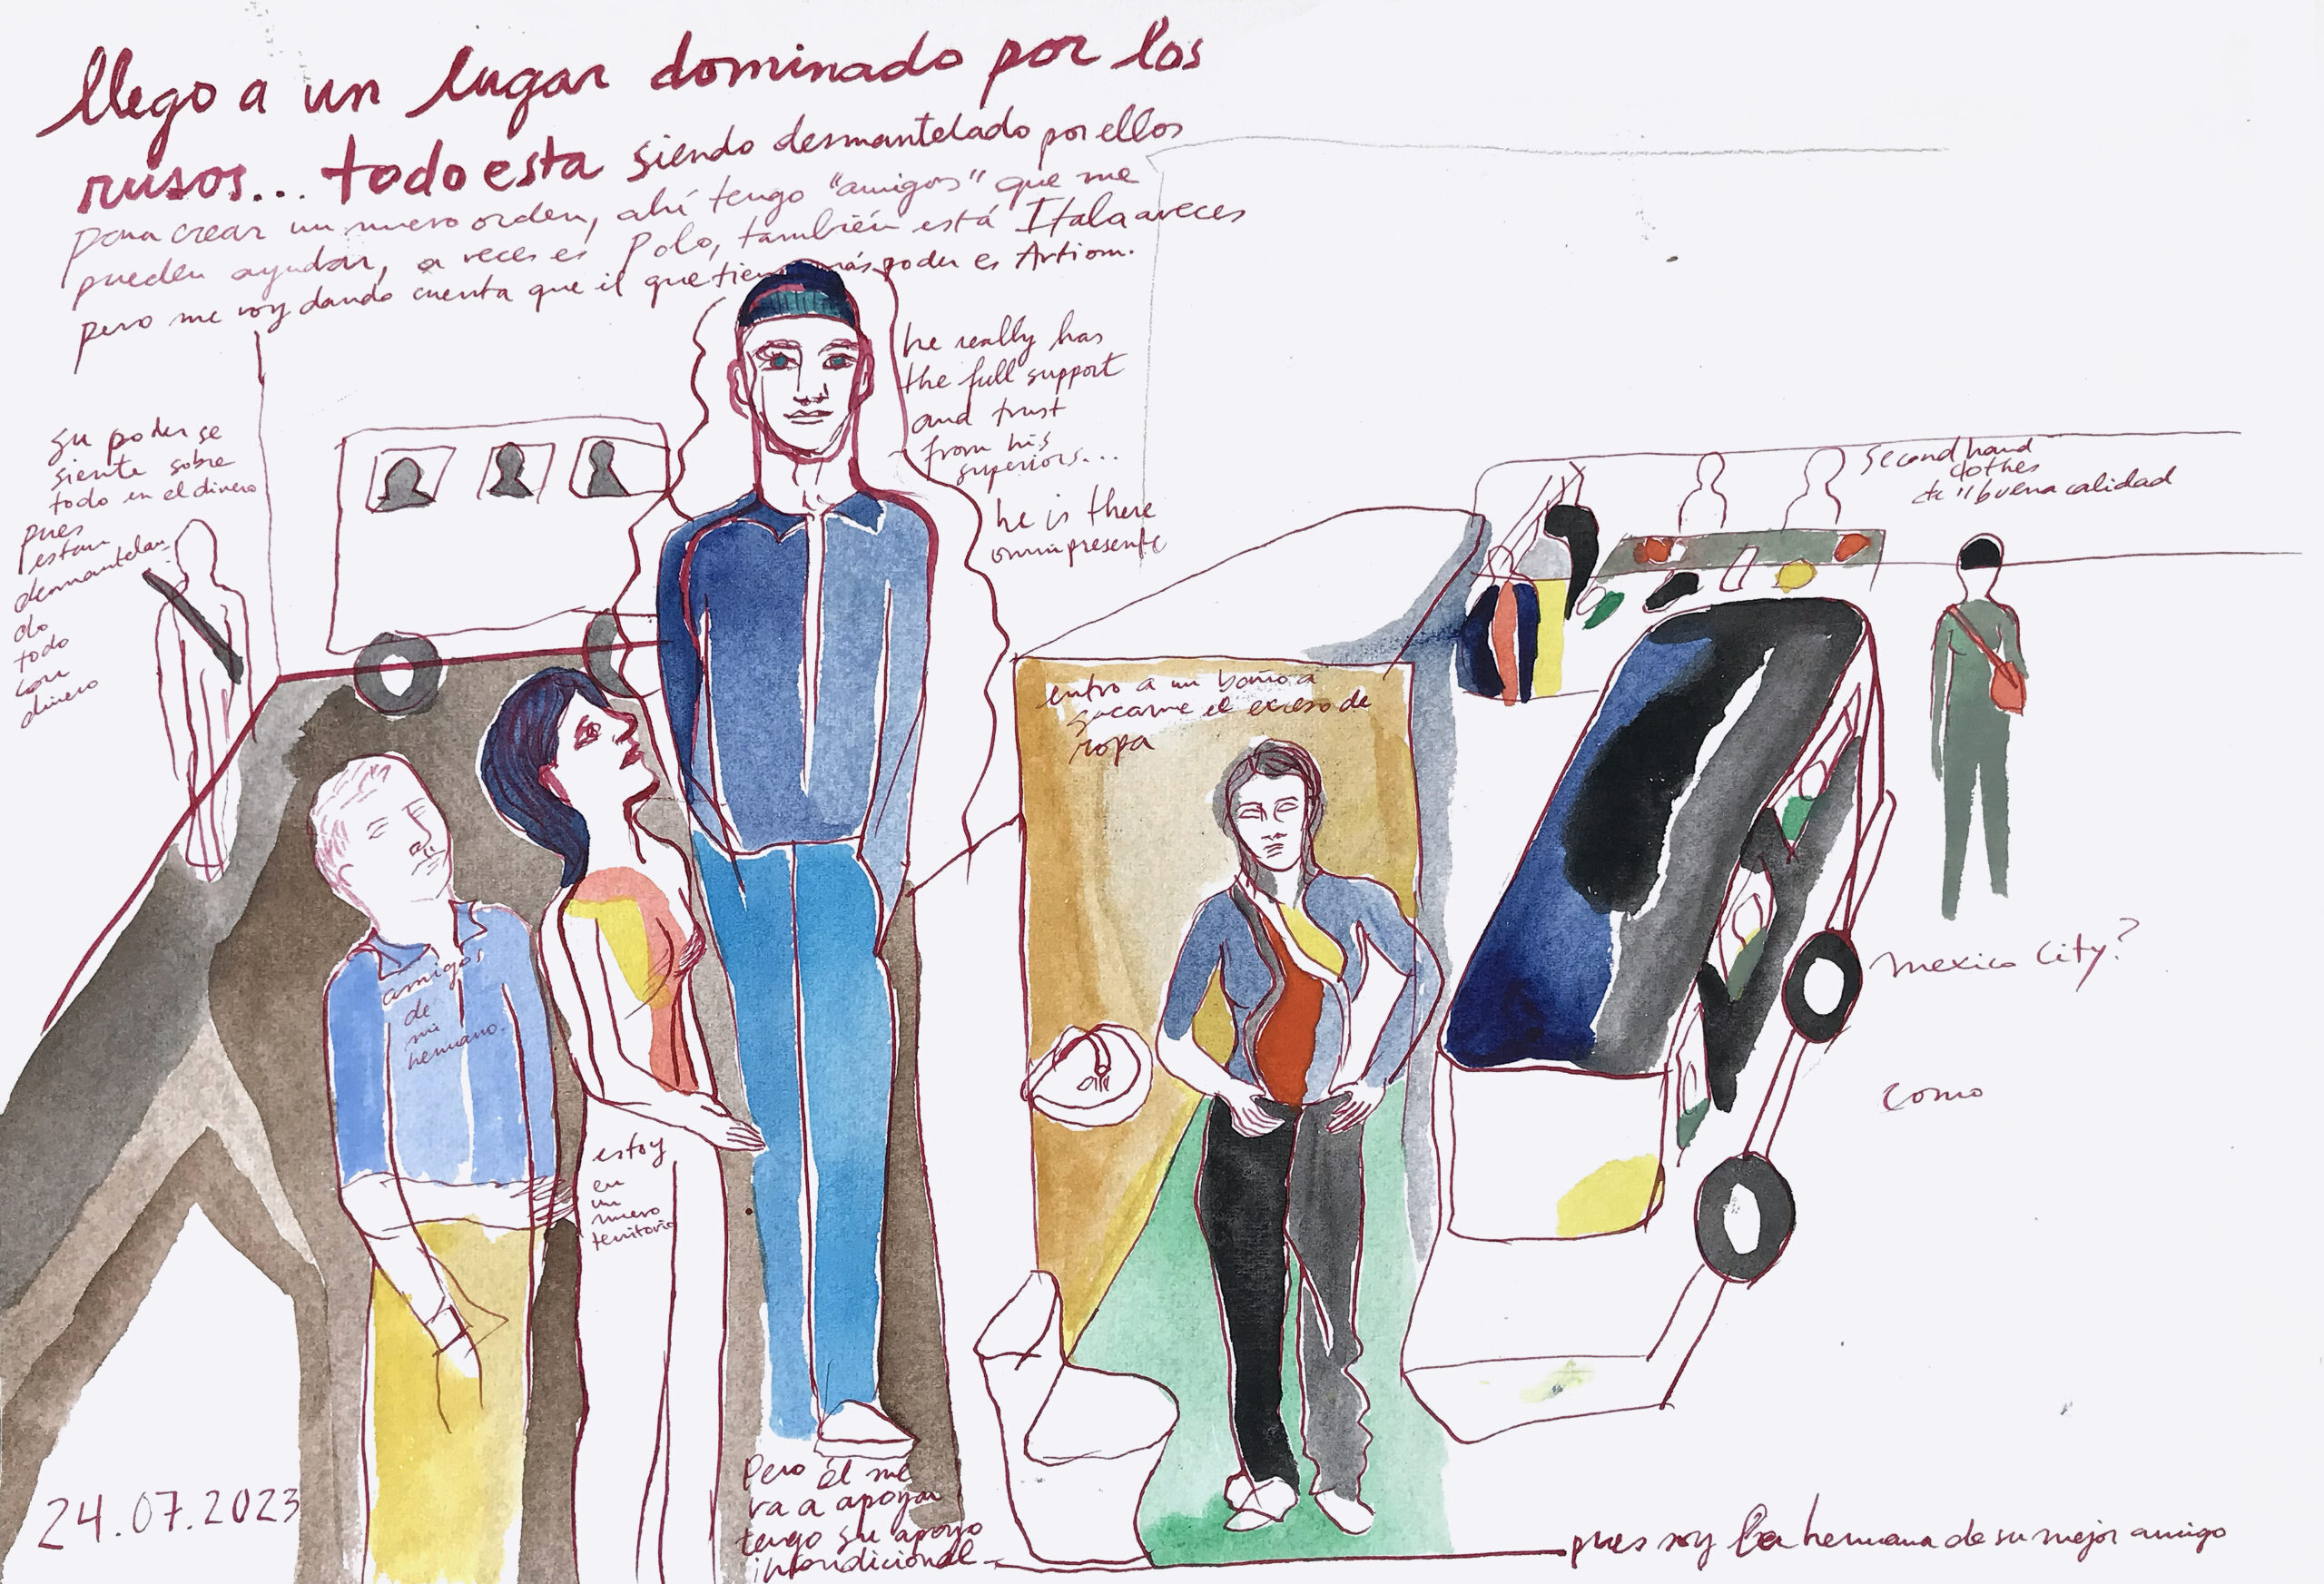 llego a un lugar dominado por los
rusos... todo esta siendo desmantelado por ellos
para crear un nuevo orden, ahí tengo "amigos" que me
pueden ayudar, a veces es Polo, también está Itala a veces
pero me voy dando cuenta que el que tiene más poder es Artiom.
su poder se
siente sobre
todo en el dinero
pues
estan
desmantelan-
do
todo
con
dinero
he really has
the full support
and trust
from his
superiors...
he is there
omnipresente
second hand
clothes
de "buena calidad
entro a un baño a
sacarme el exceso de
ropa
amigos
de
mi
hermano.
estoy
en
un
nuevo
territorio
mexico City?
como
24.07.2023
Pero él me
va a apoyar
tengo su apoyo
incondicional -
pues soy la hermana de su mejor amigo